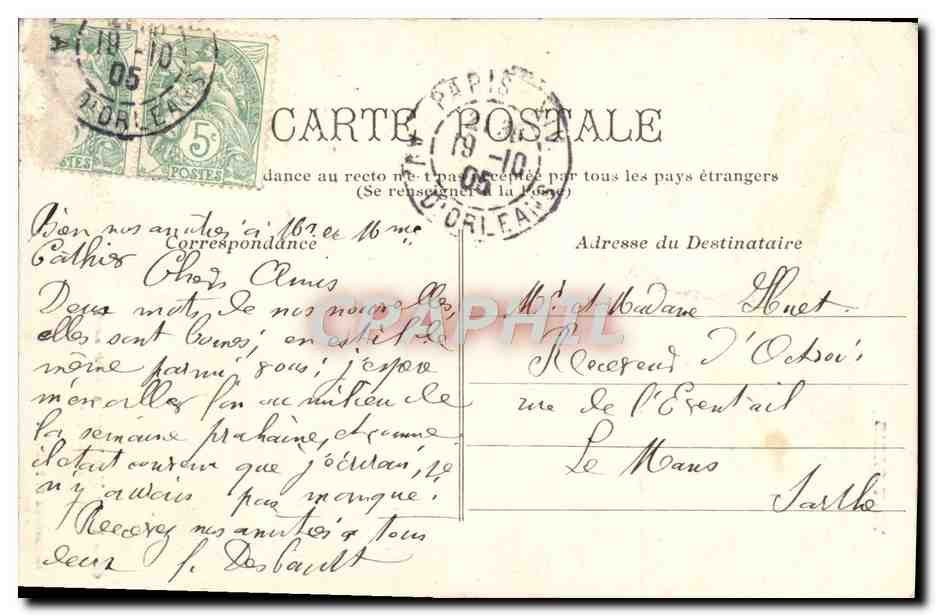 19 -10
05
D'ORLEANS
5c
POSTES
POSTES
CARTE POSTALE
PARIS
19 -10
05
AV. D'ORLEANS
dance au recto n'e t pas acceptée par tous les pays étrangers
(Se renseigner à la Poste)
Bien nos amitiés à Mr et Mme
Correspondance
Chers Amis
Deux mots de nos nouvelles,
elles sont bonnes; en est il de
même parmi vous; j'espère
m'en aller au milieu de
la semaine prochaine, et comme
il était convenu que j'écrirai, je
n'y aurais pas manqué;
Recevez nos amitiés à tous
deux
CPAPHIL
Adresse du Destinataire
Mr et Madame Huet
Receveur d'Octroi
rue de l'Eventail
Le Mans
Sarthe